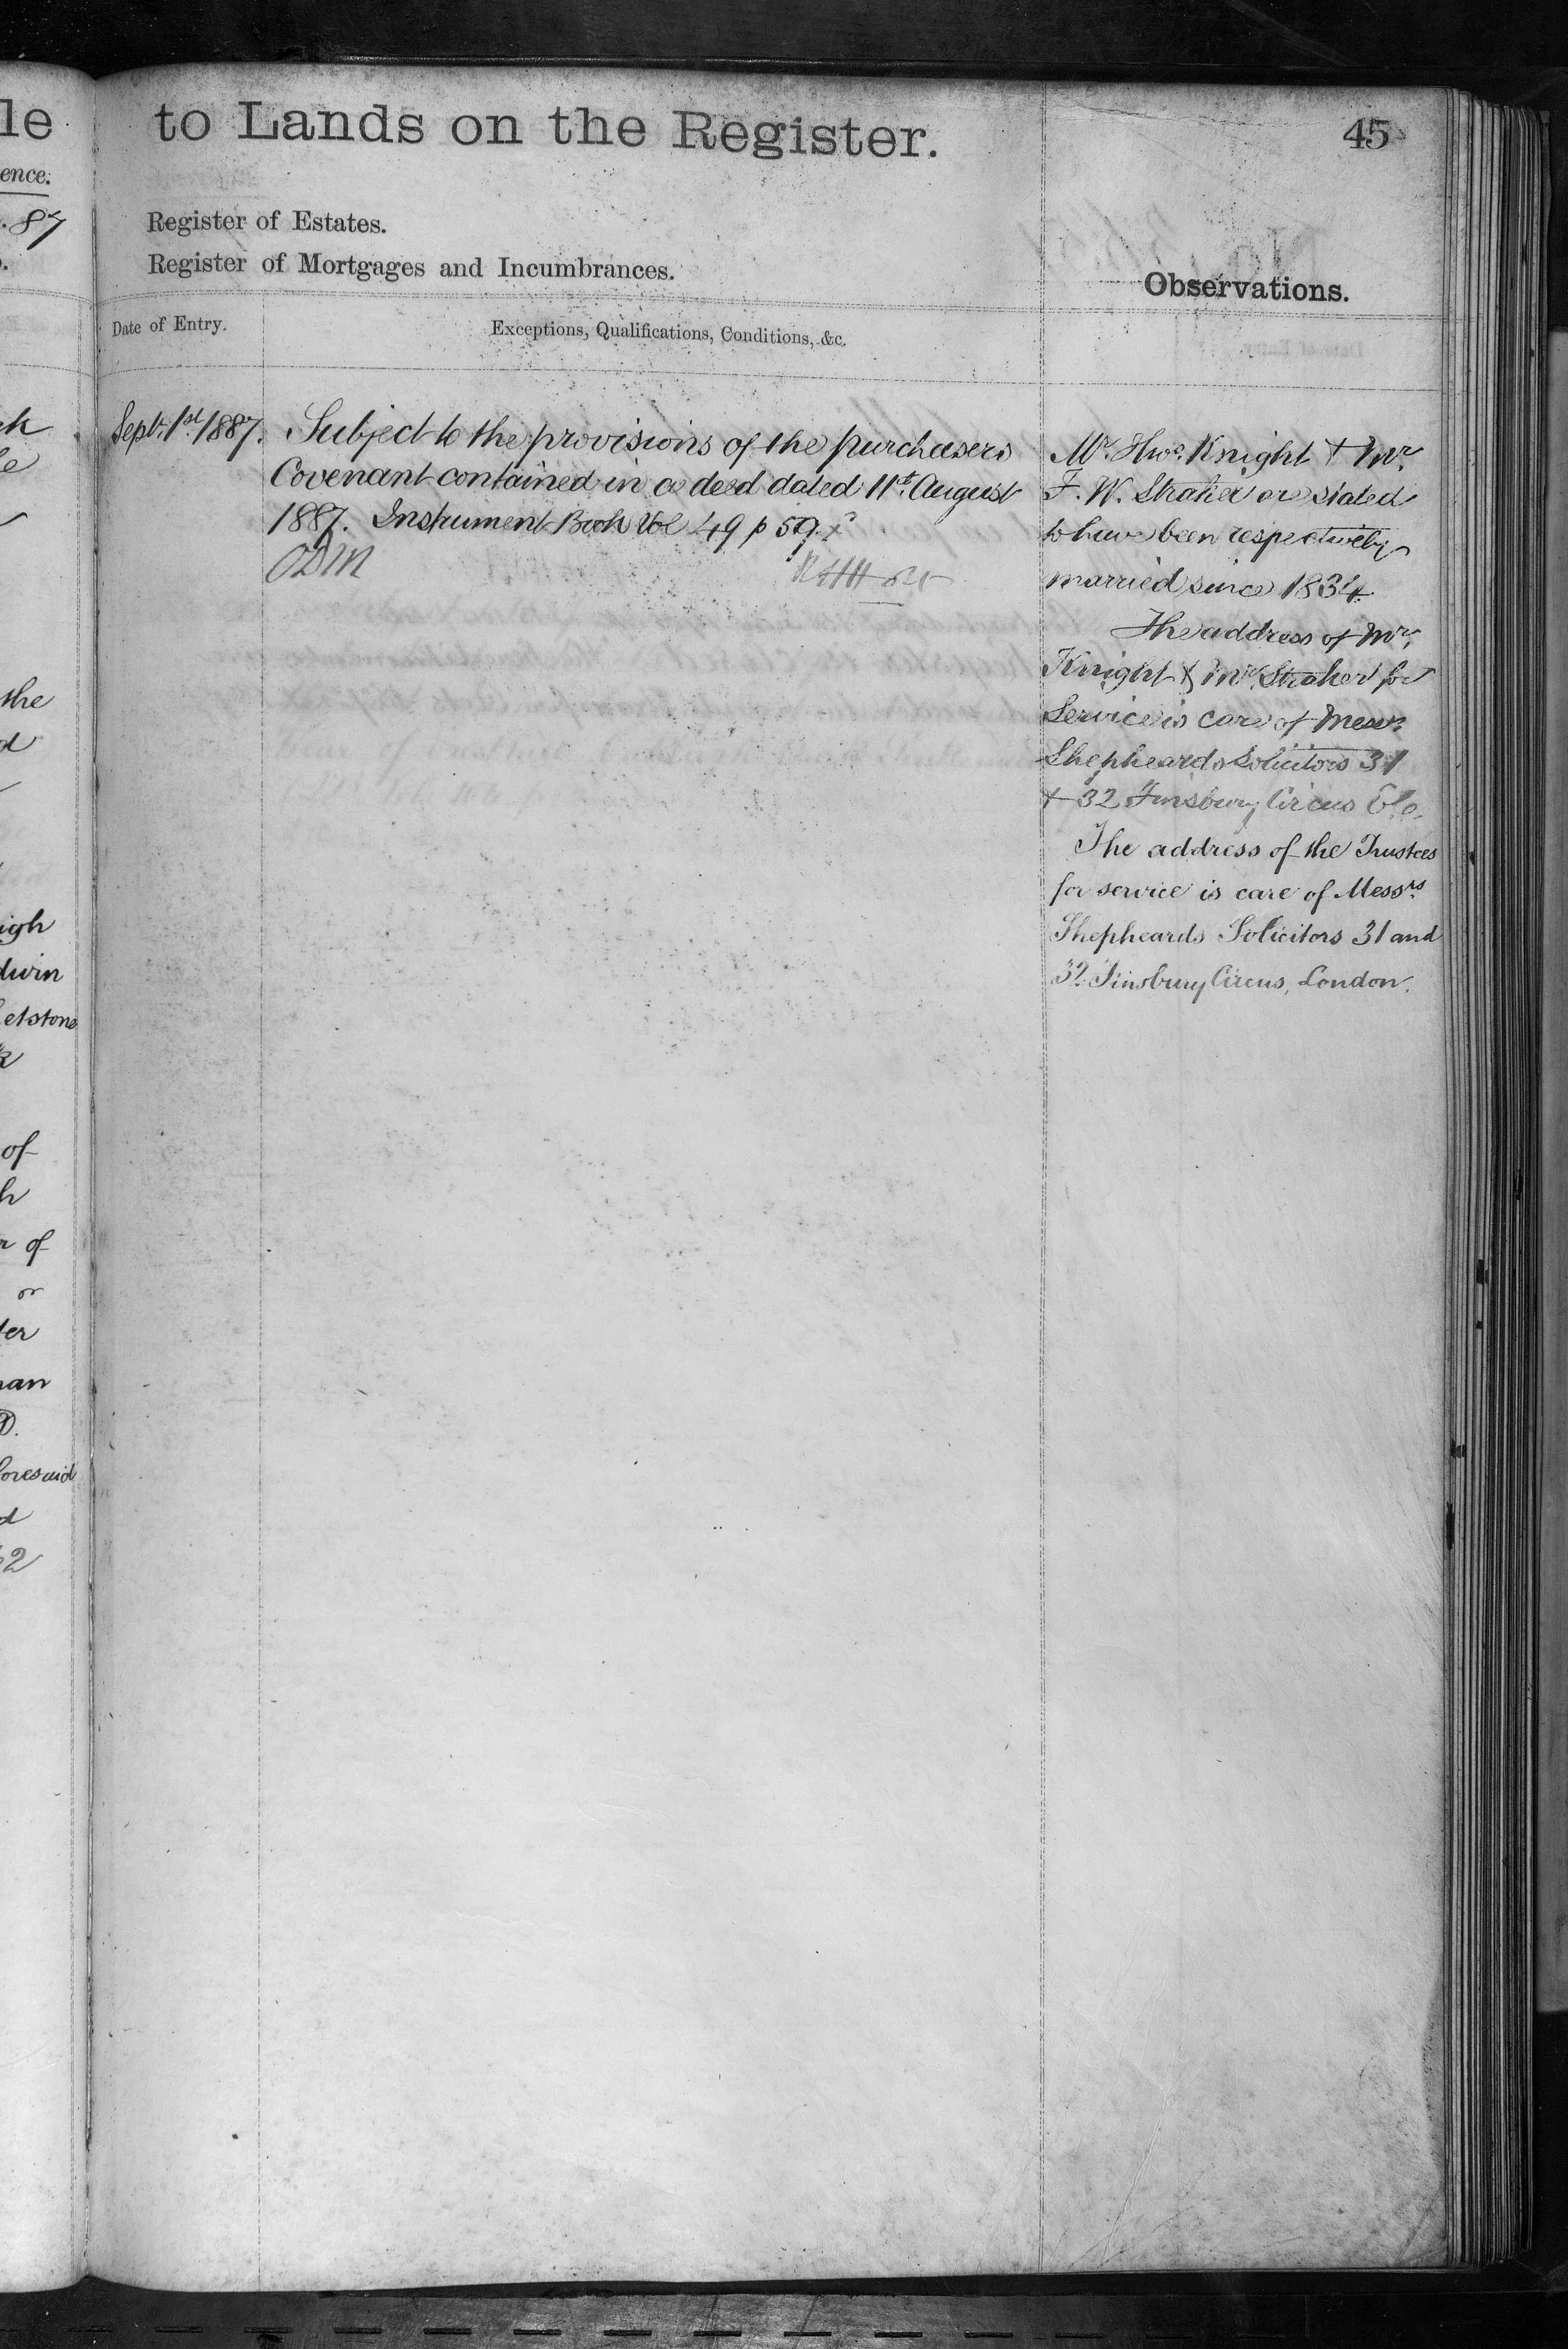 le
ence.
. 87
ck
the
d
igh
dwin
etstone
of
h
r of
or
ter
han
D.
foresaid
d
62
to Lands on the Register.
45
Register of Estates.
Register of Mortgages and Incumbrances.
Observations.
Date of Entry.
Exceptions, Qualifications, Conditions, &c.
Sept. 1st 1887.
Subject to the provisions of the purchasers
Covenant contained in a deed dated 11th August
1887. Instrument Book Vol 49 p 59.
ODM
Mr. Knight & Mr.
F. W. Straker are stated
to have been respectively
married since 1834.
The address of Mr.
Knight & Mr. Straker for
Service is care of Messrs.
Shepheards Solicitors 31
& 32 Finsbury Circus E.C.
The address of the Trustees
for service is care of Messrs.
Shepheards Solicitors 31 and
32 Finsbury Circus, London.